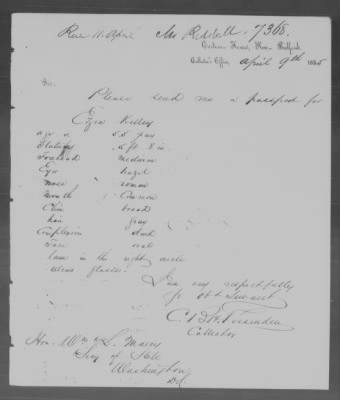 Rec 11. April Mr Reddall. 7368.
Custom House, New Bedford.
Collector's Office, April 9th 1855
Sir.
Please send me a passport for
Ezra Kelley
age 55 years
Stature 5 ft 8 in.
Forehead medium
Eyes hazel
nose roman
mouth Common
Chin broad
hair gray
Complexion dark
Face oval
lame in the right ancle
wears glasses.
I am very respectfully
Yr obt Servant
Collector
Hon. Wm L. Marcy
Secy of State
Washington
D.C.